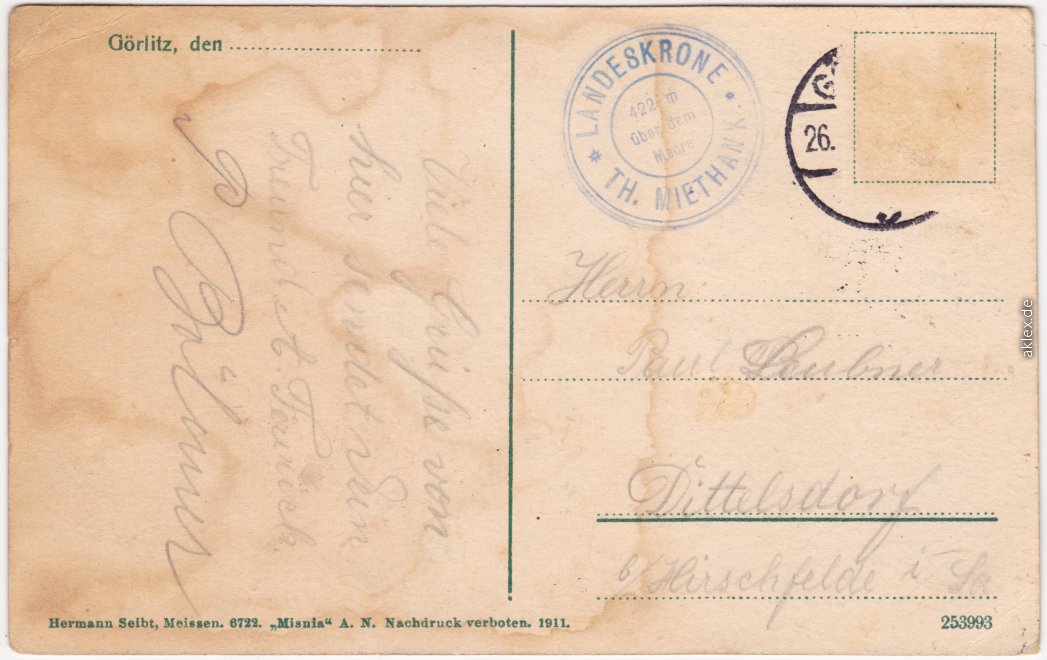 Görlitz, den
LANDESKRONE
422 m
über dem
Meere
TH. MIETHANK
G
26.
Viele Grüße von
hier sendet Dein
Freund A. Feurich
Herrn
Paul Leubner
Dittelsdorf
b/ Hirschfelde i Sa
Hermann Seibt, Meissen. 6722. „Misnia“ A. N. Nachdruck verboten. 1911.
253993
aklex.de